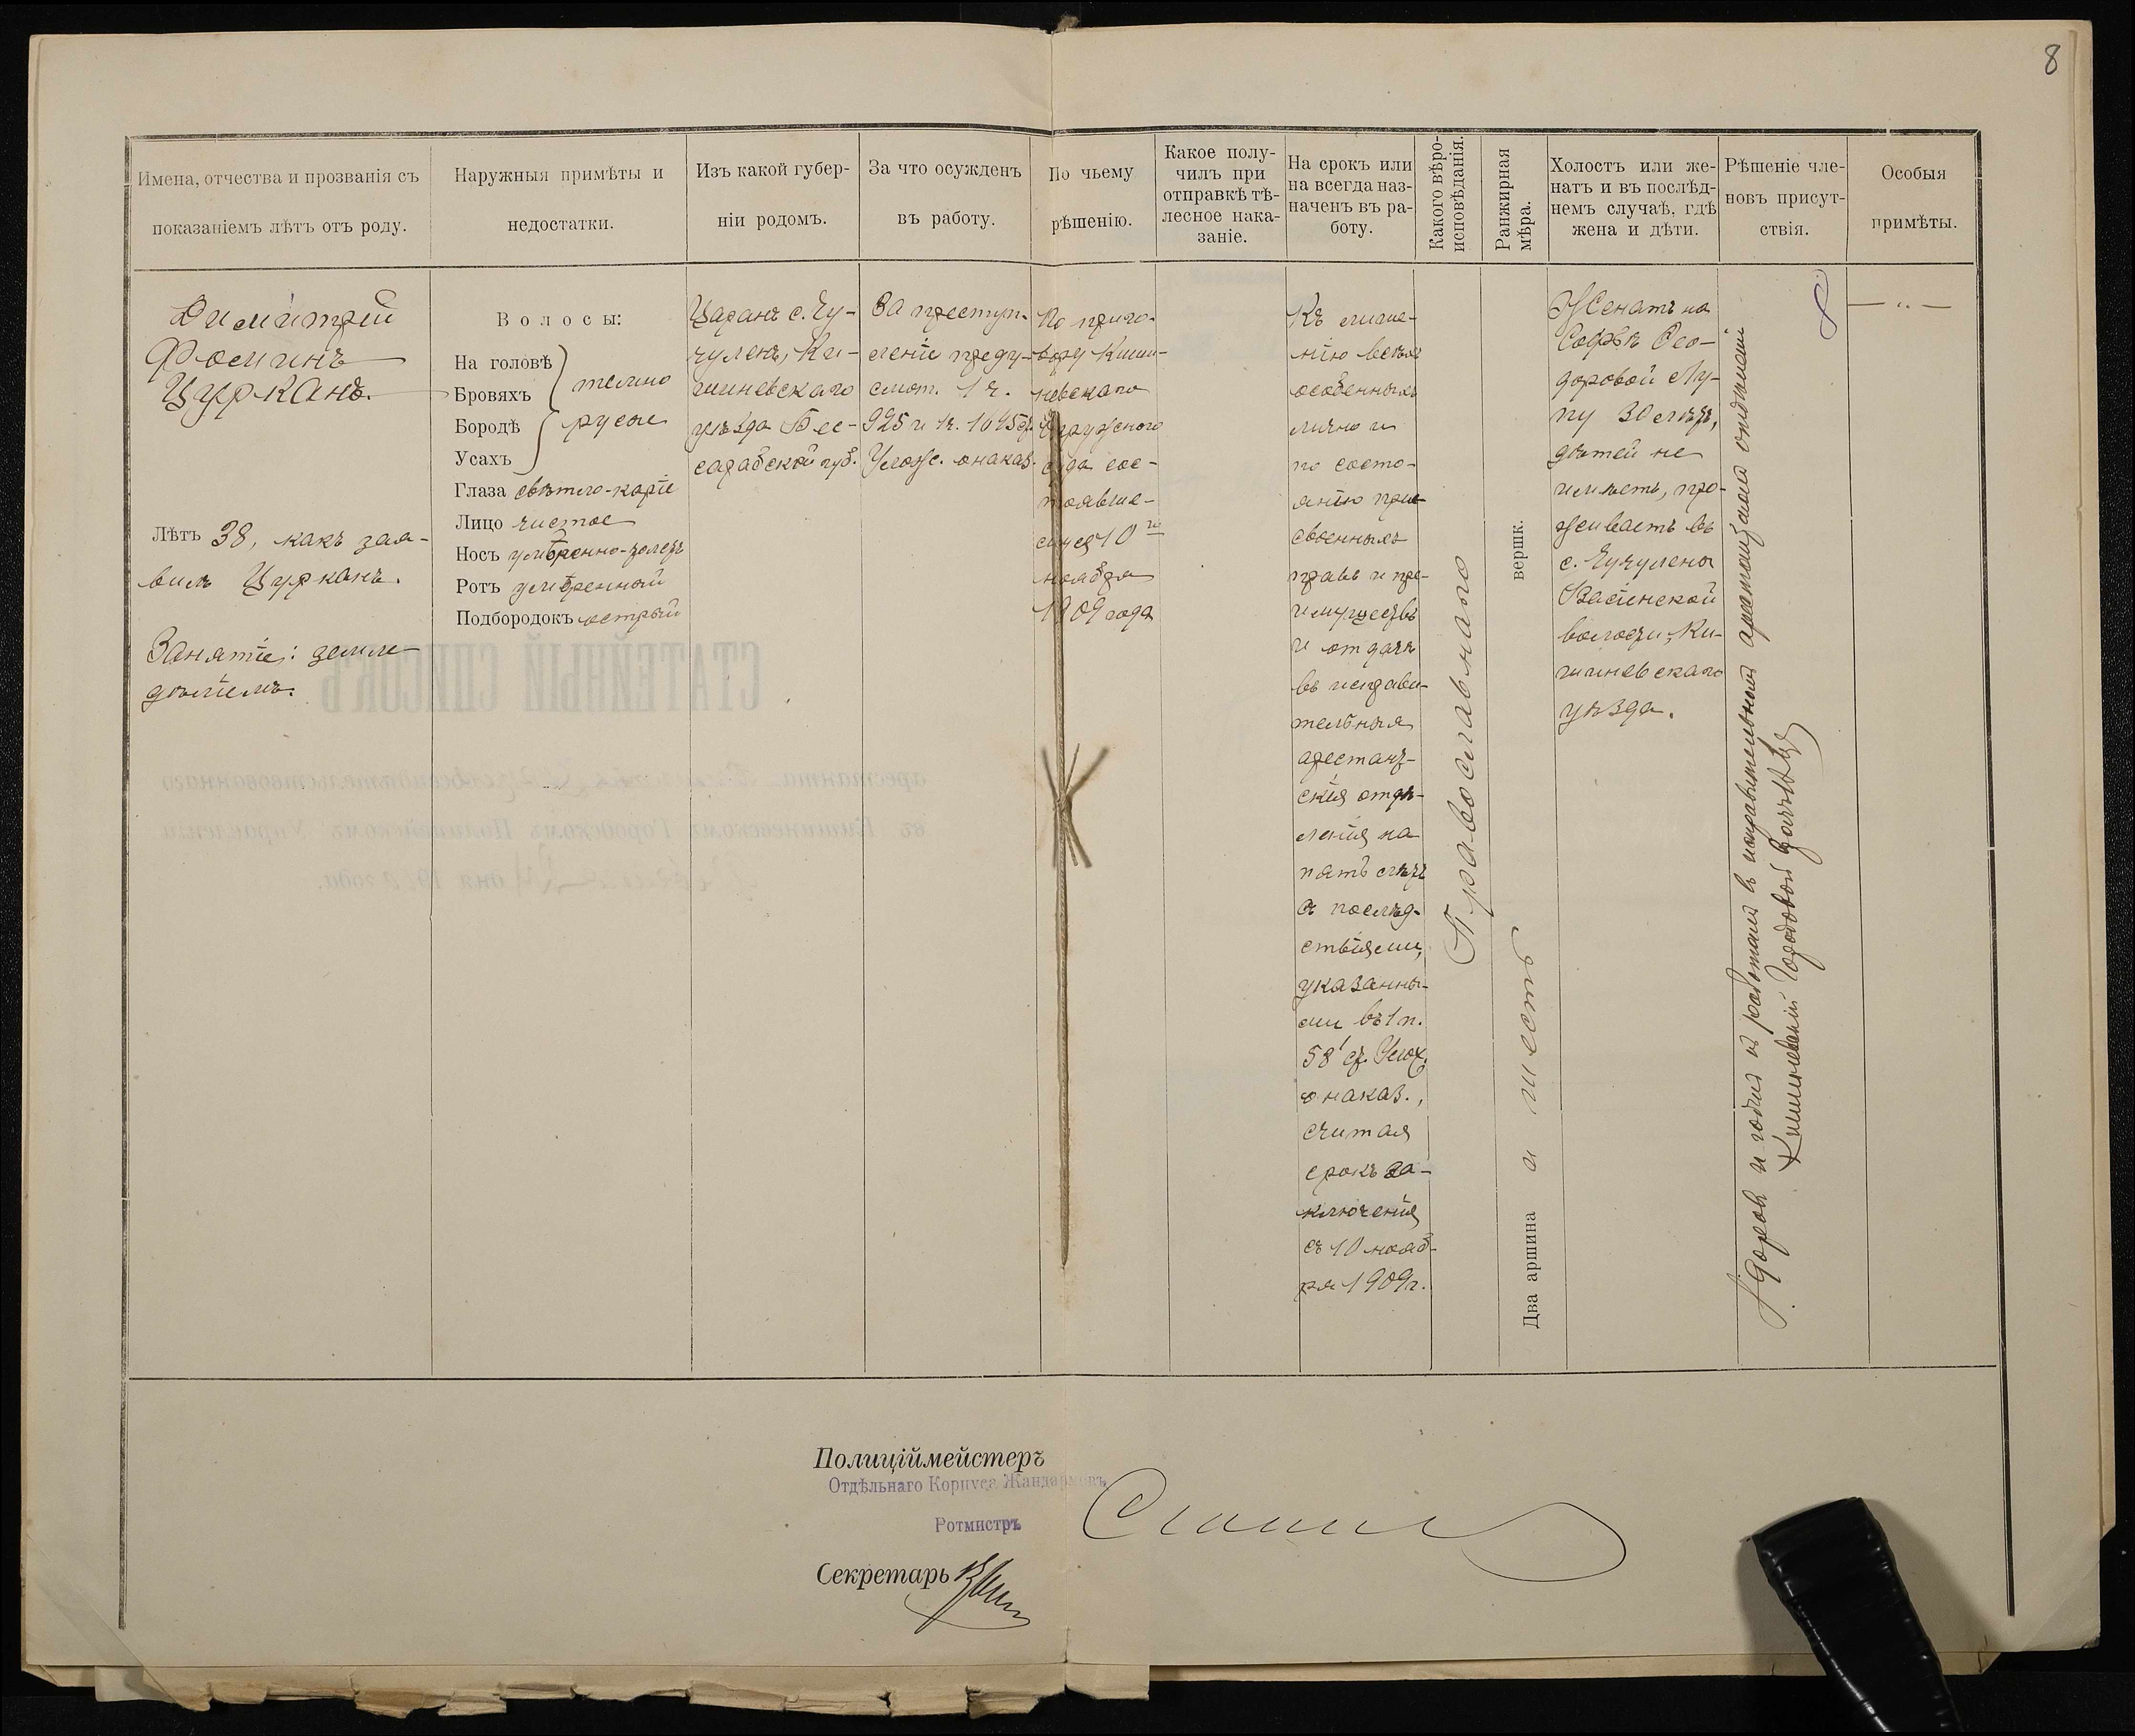 8
Имена, отчества и прозванія съ
показаніемъ лѣтъ отъ роду.
Наружныя примѣты и
недостатки.
Изъ какой губер-
ніи родомъ.
За что осужденъ
въ работу.
По чьему
рѣшенію.
Какое полу-
чилъ при
отправкѣ тѣ-
лесное нака-
заніе.
На срокъ или
на всегда наз-
наченъ въ ра-
боту.
Какого вѣро-
исповѣданія.
Ранжирная
мѣра.
Холостъ или же-
натъ и въ послѣд-
немъ случаѣ, гдѣ
жена и дѣти.
Рѣшеніе чле-
новъ присут-
ствія.
Особыя
примѣты.
Димитрій
Фоминъ
Цурканъ.
Лѣтъ 38, какъ зая-
вилъ Цурканъ.
Занятіе: земле-
дѣліемъ.
Волосы:
На головѣ
Бровяхъ
темно
Бородѣ
русые
Усахъ
Глаза свѣтло-каріе
Лицо чистое
Носъ умѣренно-
Ротъ умѣренный
Подбородокъ острый
Царанъ с. Чу-
чуленъ, Ки-
шиневскаго
уѣзда Бес-
сарабской губ.
За преступ-
леніе преду-
смот. 1 ч.
925 и 1 ч. 1645 ст.
Улож. о наказ.
По приго-
вору Киши-
невскаго
Окружного
суда сос-
тоявше-
муся 10го
ноября
1909 года
Къ лише-
нію всѣхъ
особенныхъ
лично и
по состо-
янію прис-
своенныхъ
правъ и пре-
имуществъ
и отдачѣ
въ исправи-
тельныя
арестант-
скія отдѣ-
ленія на
пять лѣтъ
съ послѣд-
ствіями,
указанны-
ми въ 1 п.
58¹ ст. Улож.
о наказ.,
считая
срокъ за-
ключенія
съ 10 нояб-
ря 1909 г.
Православнаго
Два аршина и шесть вершк.
Женатъ на
Софіи Ѳео-
доровой Лу-
пу 30 лѣтъ,
дѣтей не
имѣетъ, про-
живаетъ въ
с. Чучулены
Васіенской
волости, Ки-
шиневскаго
уѣзда.
Здоровъ и годенъ къ работамъ въ исправительномъ арестантскомъ отдѣленіи
Кишиневскій Городовой Врачъ
8
— „ —
СТАТЕЙНЫЙ СПИСОКЪ
арестанта
въ Кишиневскомъ Городскомъ Полицейскомъ Управленіи
Полиціймейстеръ
Отдѣльнаго Корпуса Жандармовъ
Ротмистръ
Секретарь